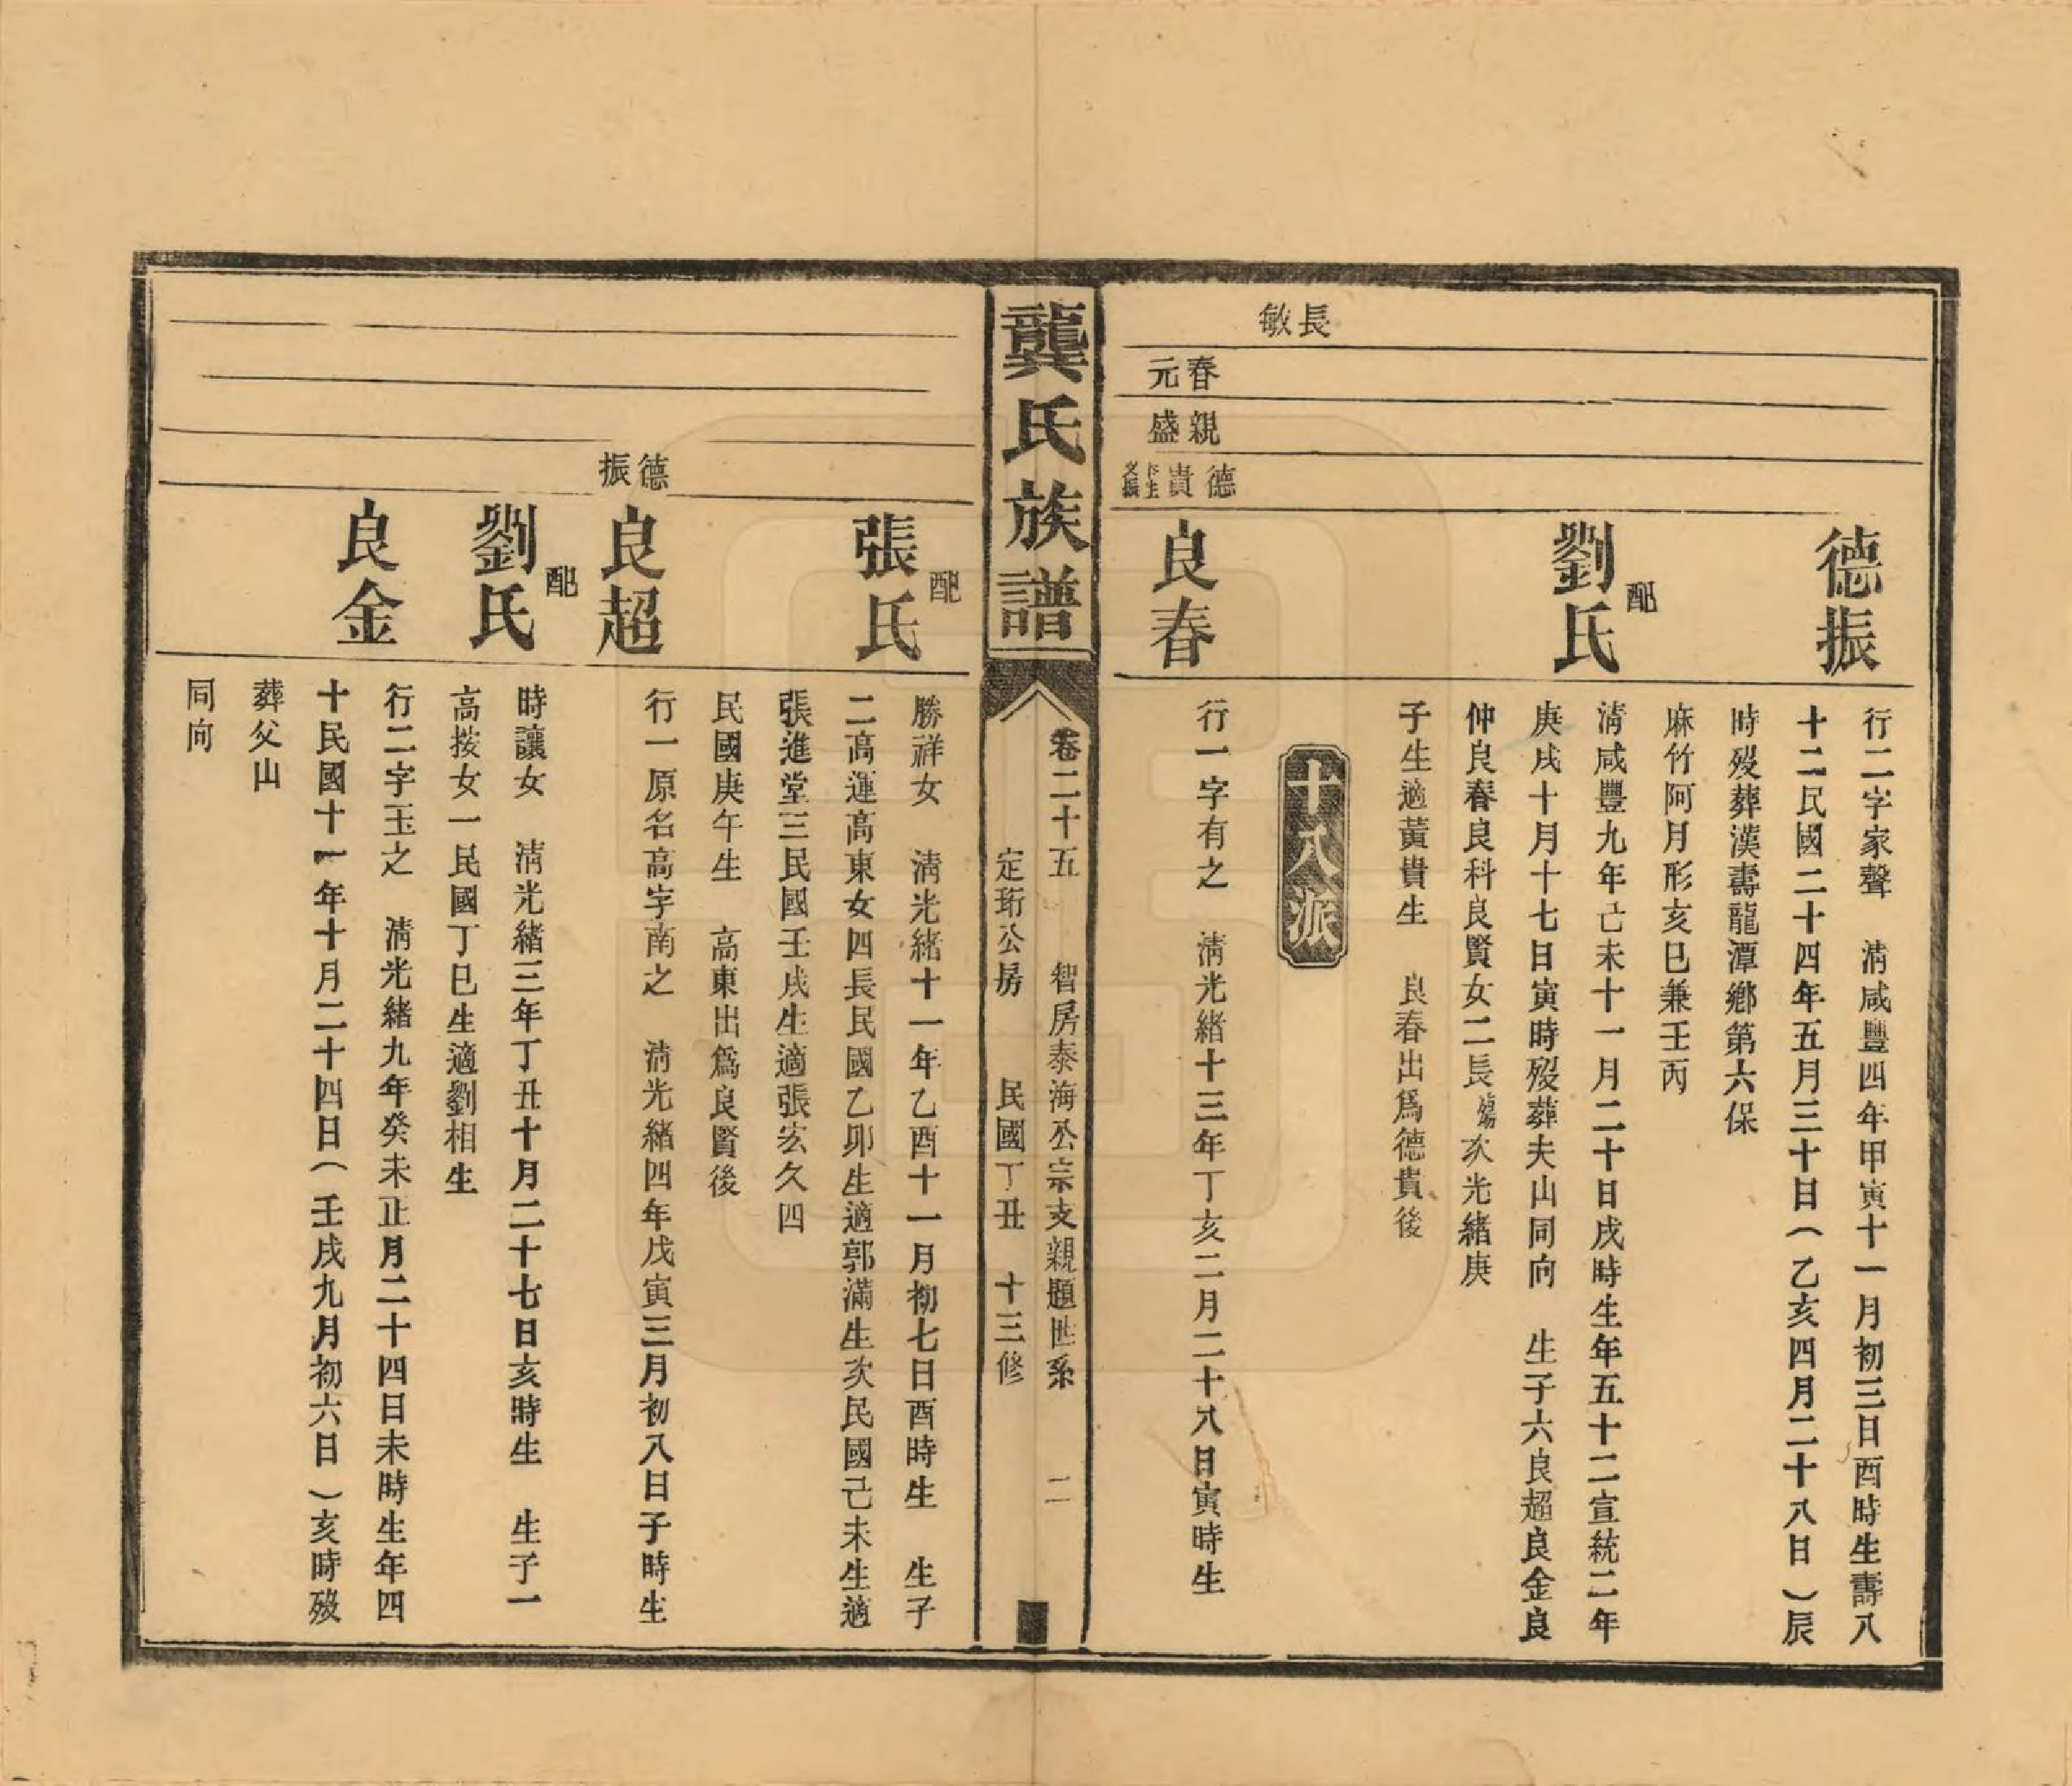 德振
行二字家聲　清咸豐四年甲寅十一月初三日酉時生壽八
十二民國二十四年五月三十日（乙亥四月二十八日）辰
時歿葬漢壽龍潭鄉第六保
麻竹阿月形亥巳兼壬丙
配
劉氏
清咸豐九年己未十一月二十日戌時生年五十二宣統二年
庚戌十月十七日寅時歿葬夫山同向　生子六良超良金良
仲良春良科良賢女二長殤次光緒庚
子生適黃貴生　良春出爲德貴後
十八派
長敏
春元
親盛
德貴本生父振
良春
行一字有之　清光緒十三年丁亥二月二十八日寅時生
龔氏族譜
卷二十五　智房泰海公宗支親題世系　二
定珩公房　民國丁丑　十三修
配
張氏
勝祥女　清光緒十一年乙酉十一月初七日酉時生　生子
二高運高東女四長民國乙卯生適郭滿生次民國己未生適
張進堂三民國壬戌生適張宏久四
民國庚午生　高東出爲良賢後
德振
良超
行一原名高字南之　清光緒四年戊寅三月初八日子時生
配
劉氏
時讓女　清光緒三年丁丑十月二十七日亥時生　生子一
高按女一民國丁巳生適劉相生
良金
行二字玉之　清光緒九年癸未正月二十四日未時生年四
十民國十一年十月二十四日（壬戌九月初六日）亥時歿
葬父山
同向